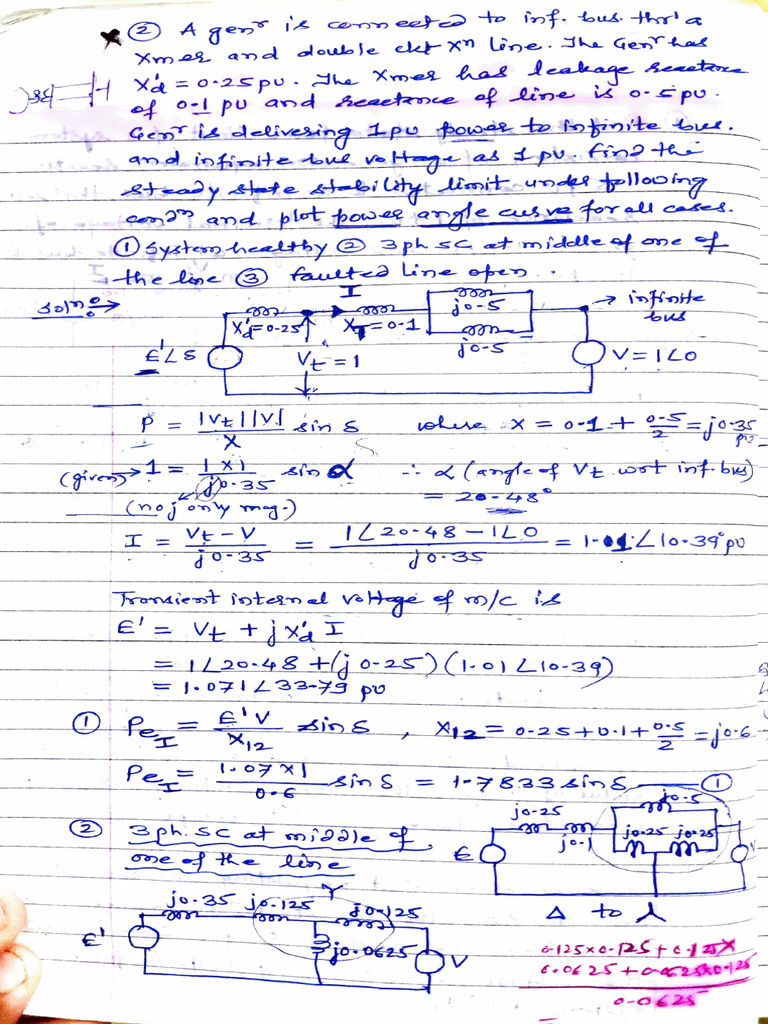 ② A genr is connected to inf. bus. thr' a
Xmer and double ckt Xn line. The Genr has
X'd = 0.25 pu. The Xmer has leakage reactance
of 0.1 pu and reactance of line is 0.5 pu.
Genr is delivering 1 pu power to infinite bus.
and infinite bus voltage as 1 pu. find the
steady state stability limit under following
condn and plot power angle curve for all cases.
① System healthy ② 3 ph SC at middle of one of
the line ③ faulted line open.
soln :→
I
j0.5
→ infinite
bus
X'd=0.25
XT=0.1
j0.5
E'∠δ
Vt = 1
V = 1∠0
P = |Vt||V| / X sin δ where X = 0.1 + 0.5/2 = j0.35 pu
(given)→ 1 = 1×1 / j0.35 sin α ∴ α (angle of Vt wrt inf. bus)
(no j only mag.) = 20.48°
I = Vt - V / j0.35 = 1∠20.48 - 1∠0 / j0.35 = 1.01∠10.39° pu
Transient internal voltage of m/c is
E' = Vt + j X'd I
= 1∠20.48 + (j 0.25) (1.01∠10.39)
= 1.071∠33.79 pu
① PeI = E'V / X12 sin δ , X12 = 0.25+0.1+0.5/2 = j0.6
PeI = 1.07×1 / 0.6 sin δ = 1.7833 sin δ — ①
② 3 ph. SC at middle of
one of the line
j0.5
j0.25
j0.1
j0.25 j0.25
E
V
j0.35 j0.125 Y j0.125
Δ to Y
E'
j0.0625
V
0.125×0.125 + 0.125×
0.0625 + 0.0625×0.125
0.0625